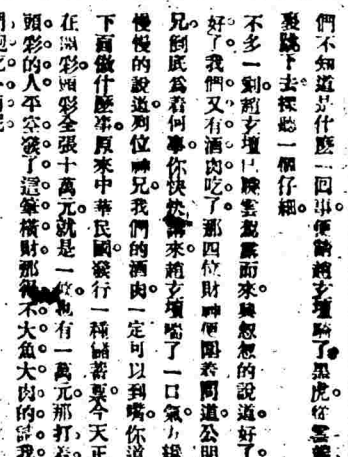 們不知道是什麼一回事便請趙玄壇騎了黑虎從雲端
裏跳下去探聽一個仔細
不多一刻趙玄壇已騰雲駕霧而來興怱怱的說道好了
好了我們又有酒肉吃了那四位財神便圍着問道公明
兄倒底爲着何事你快快講來趙玄壇喘了一口氣方纔
慢慢的說道列位神兄我們的酒肉一定可以到嘴你道
下面做什麼事原來中華民國發行一種儲蓄票今天正
在開彩頭彩全張十萬元就是一條也有一萬元那打着
頭彩的人平空發了這筆橫財那得不大魚大肉的請我